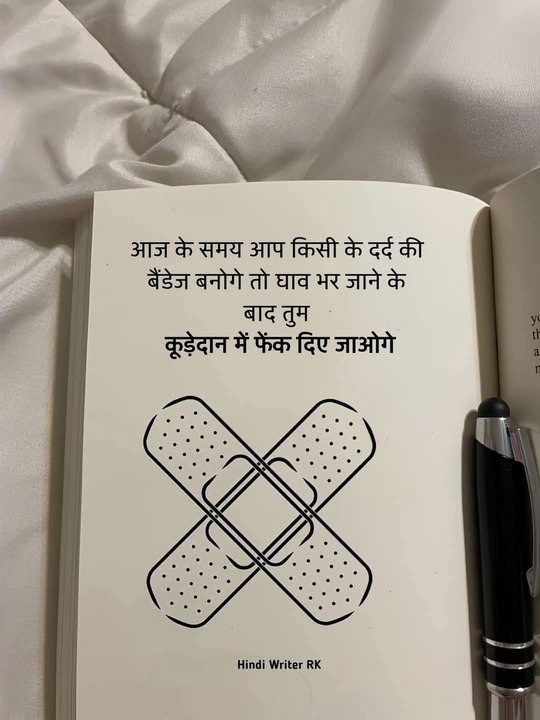 आज के समय आप किसी के दर्द की
बैंडेज बनोगे तो घाव भर जाने के
बाद तुम
कूड़ेदान में फेंक दिए जाओगे
Hindi Writer RK